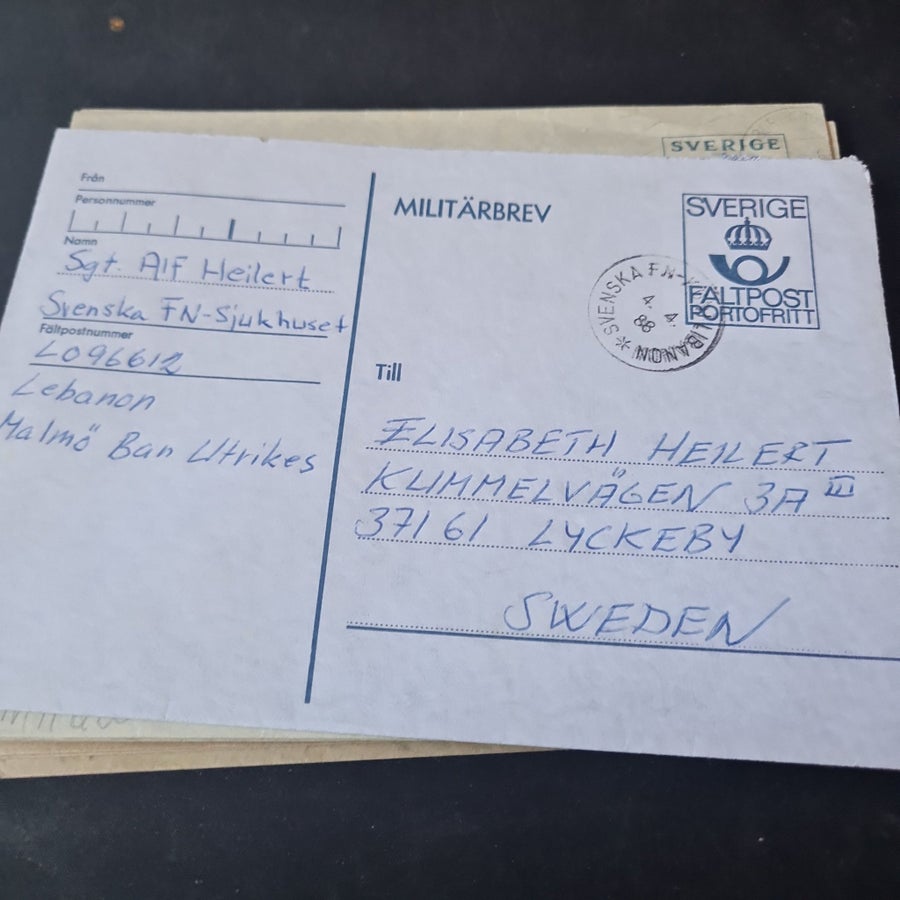 Från
Personnummer
Namn
Sgt. Alf Heilert
Svenska FN-Sjukhuset
Fältpostnummer
L096612
Lebanon
Malmö Ban Utrikes
MILITÄRBREV
SVERIGE
SVERIGE
FÄLTPOST
PORTOFRITT
SVENSKA FN-
LIBANON
4. 4.
88
Till
ELISABETH HEILERT
KUMMELVÄGEN 3A III
371 61 LYCKEBY
SWEDEN